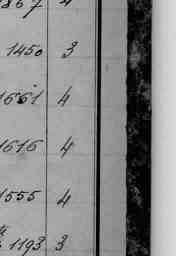 1450 3
1661 4
1616 4
1555 4
1193 3